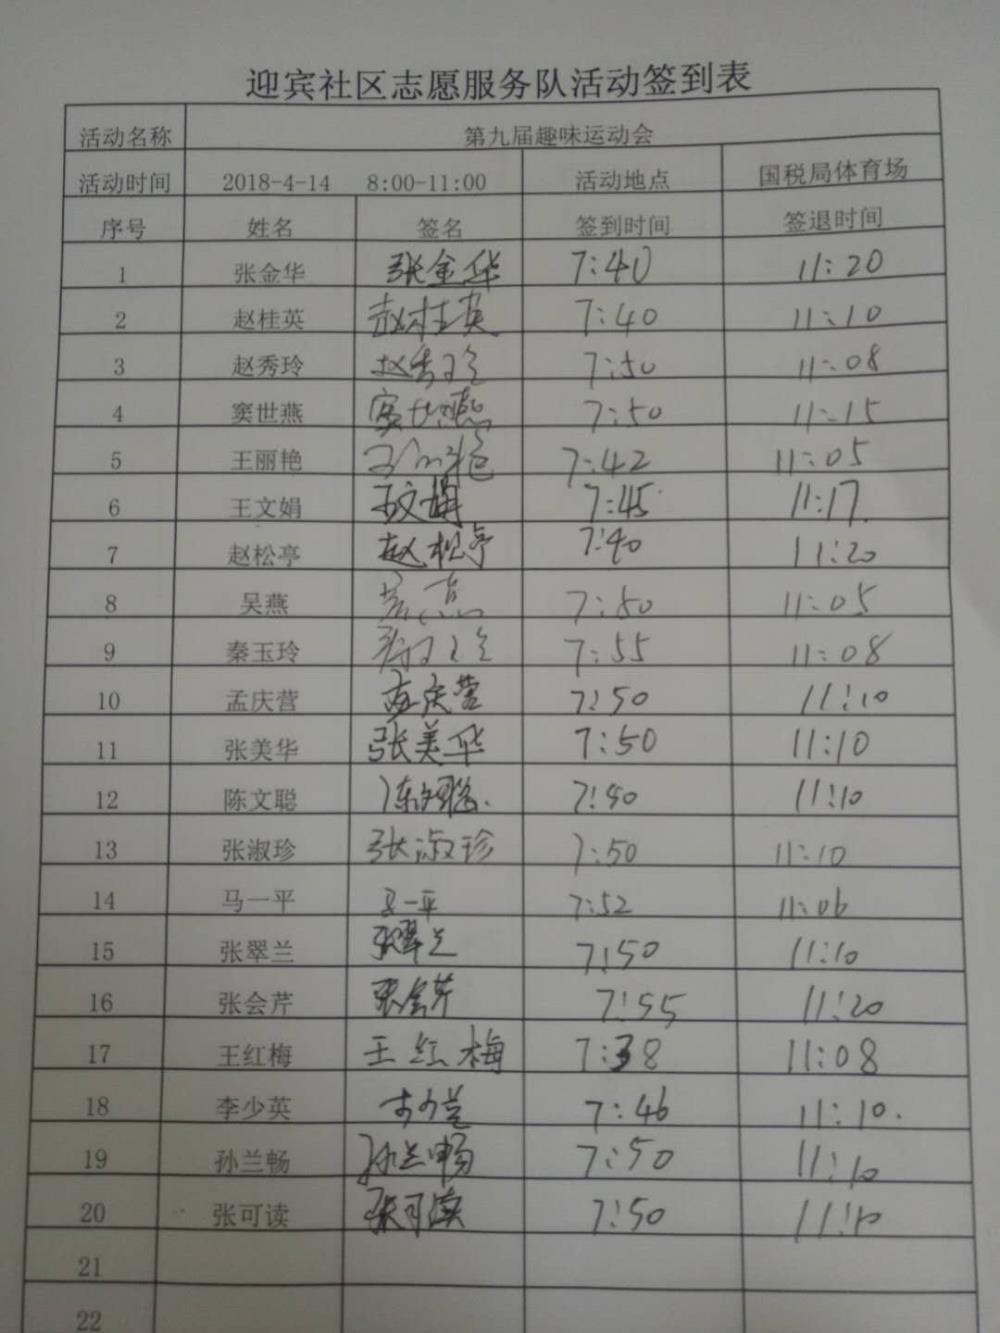 迎宾社区志愿服务队活动签到表
活动名称 第九届趣味运动会
活动时间 2018-4-14 8:00-11:00 活动地点 国税局体育场
序号 姓名 签名 签到时间 签退时间
1 张金华 张金华 7:40 11:20
2 赵桂英 赵桂英 7:40 11:10
3 赵秀玲 赵秀玲 7:50 11:08
4 窦世燕 窦世燕 7:50 11:15
5 王丽艳 王丽艳 7:42 11:05
6 王文娟 王文娟 7:45 11:17
7 赵松亭 赵松亭 7:40 11:20
8 吴燕 吴燕 7:50 11:05
9 秦玉玲 秦玉玲 7:55 11:08
10 孟庆营 孟庆营 7:50 11:10
11 张美华 张美华 7:50 11:10
12 陈文聪 陈文聪 7:40 11:10
13 张淑珍 张淑珍 7:50 11:10
14 马一平 马一平 7:52 11:06
15 张翠兰 张翠兰 7:50 11:10
16 张会芹 张会芹 7:55 11:20
17 王红梅 王红梅 7:38 11:08
18 李少英 李少英 7:46 11:10.
19 孙兰畅 孙兰畅 7:50 11:10
20 张可读 张可读 7:50 11:10
21
22